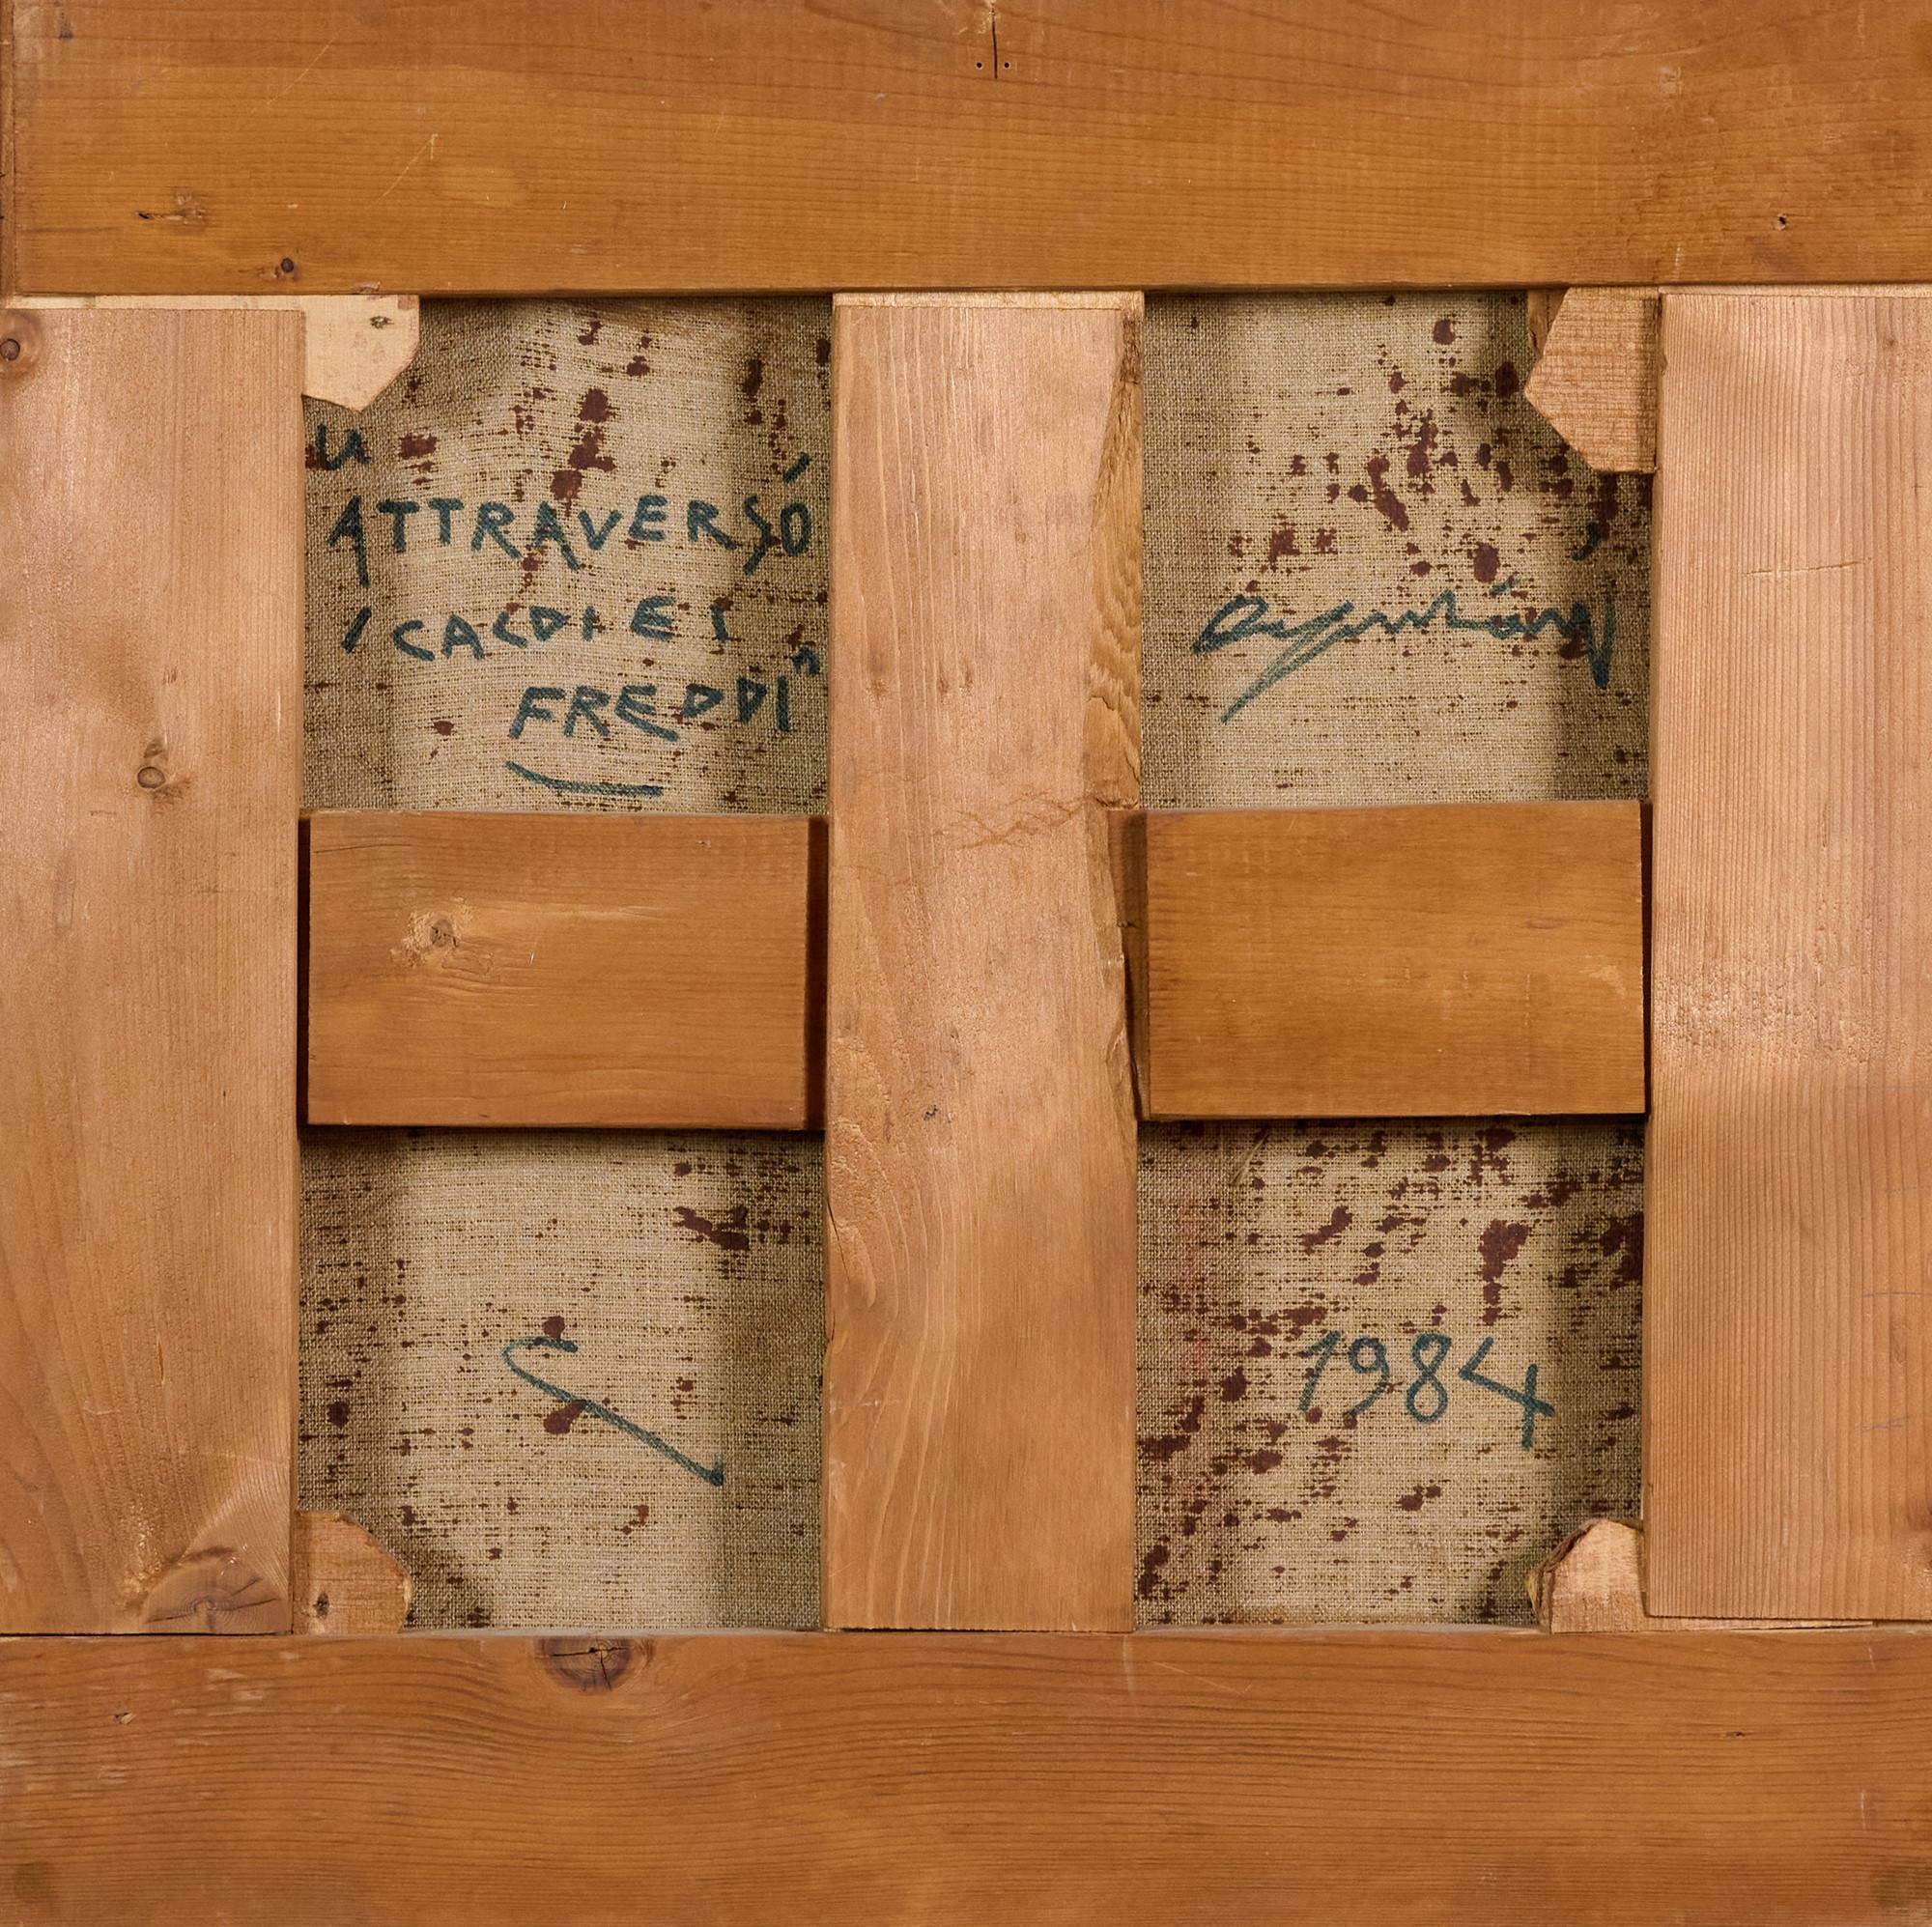 "
ATTRAVERSÓ
I CACDI ES
FREDDI"
1984